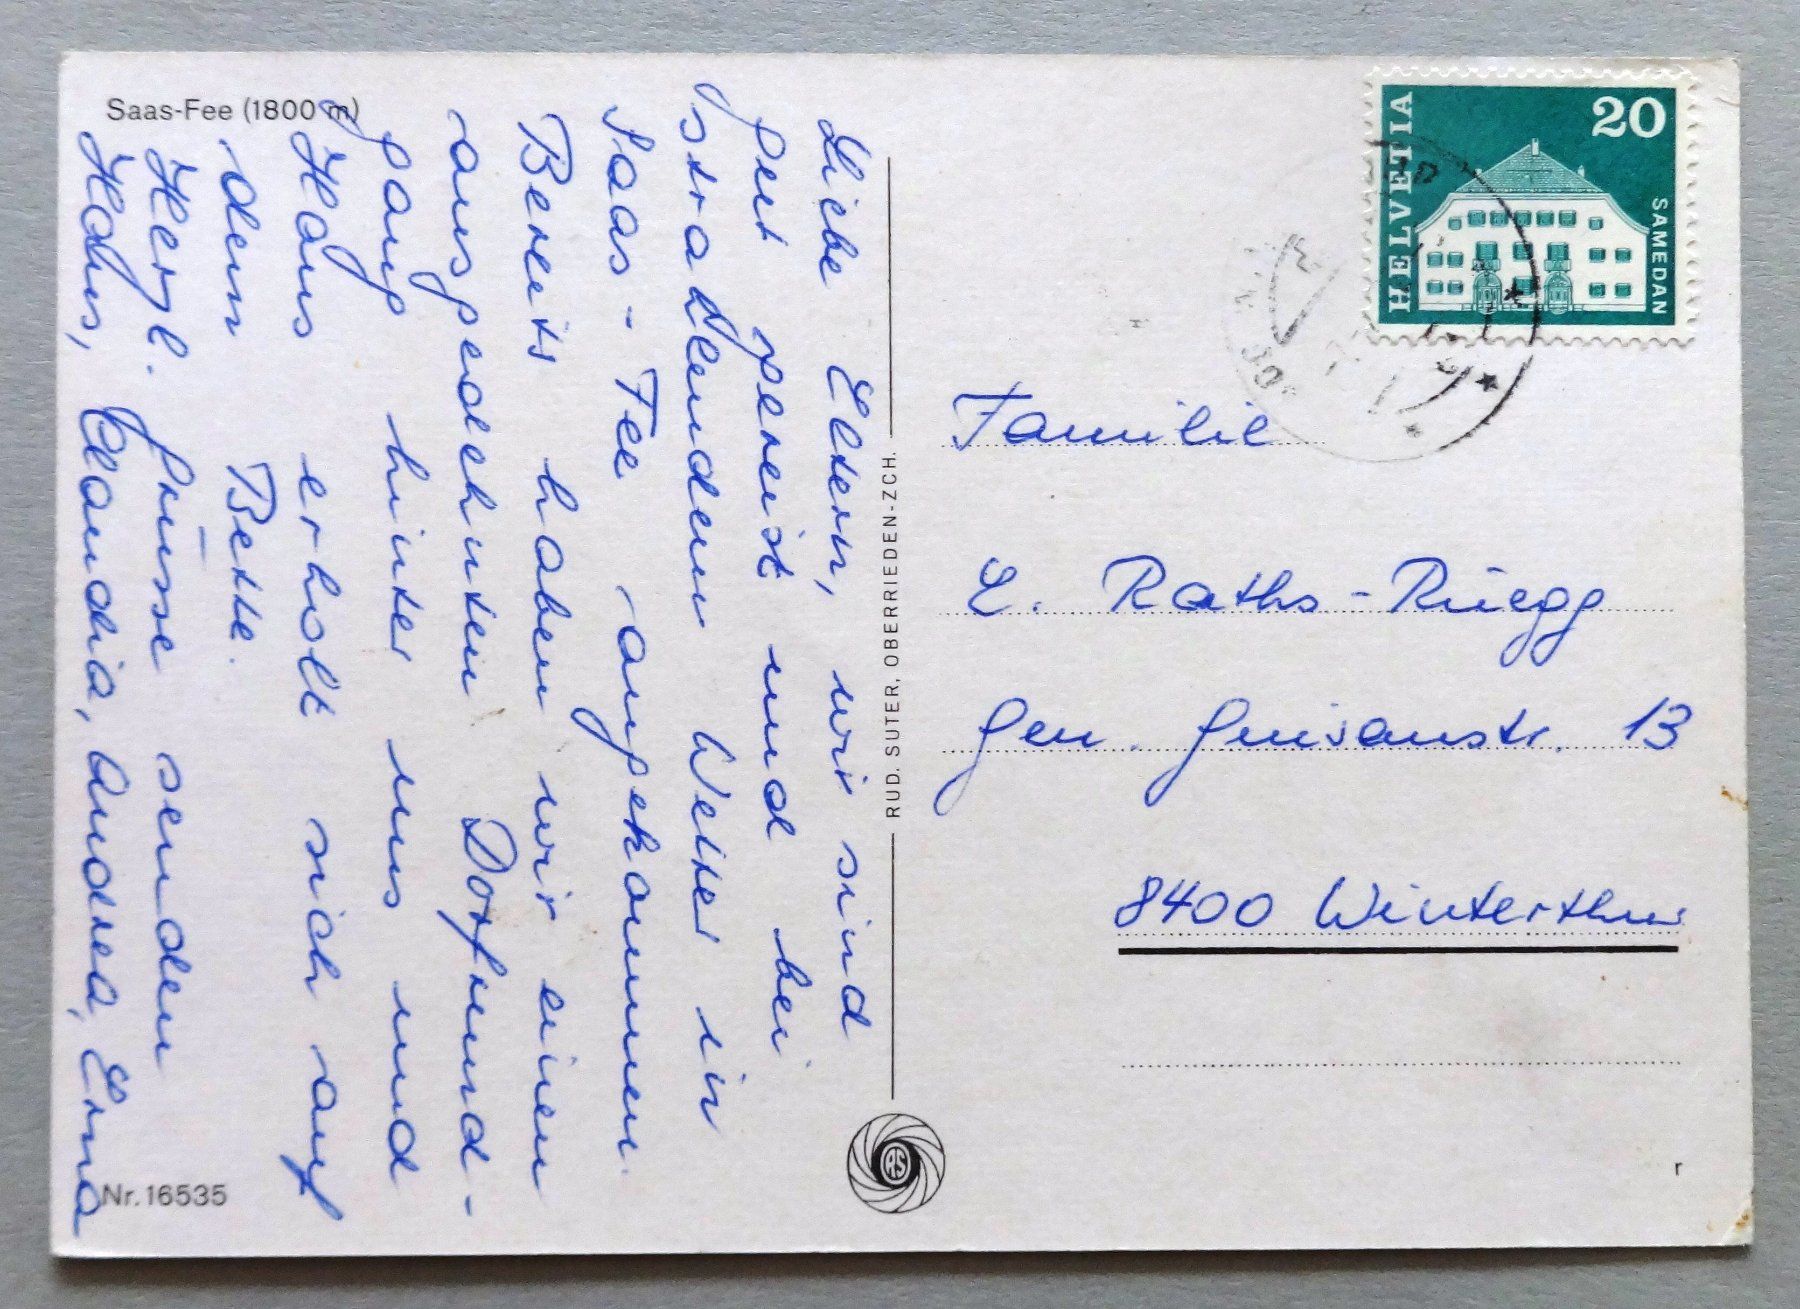 Saas-Fee (1800 m)
Liebe Eltern, wir sind
gut gereist und bei
strahlendem Wetter in
Saas-Fee angekommen.
Bereits haben wir einen
ausgedehnten Dorfrund-
gang hinter uns und
Hans erholt sich auf
dem Bette.
Herzl. Grüsse senden
Hans, Claudia, Andrea, Erna
Nr. 16535
RUD. SUTER, OBERRIEDEN-ZCH.
RS
HELVETIA
20
SAMEDAN
Familie
E. Raths-Rüegg
Gen. Guisanstr. 13
8400 Winterthur
r